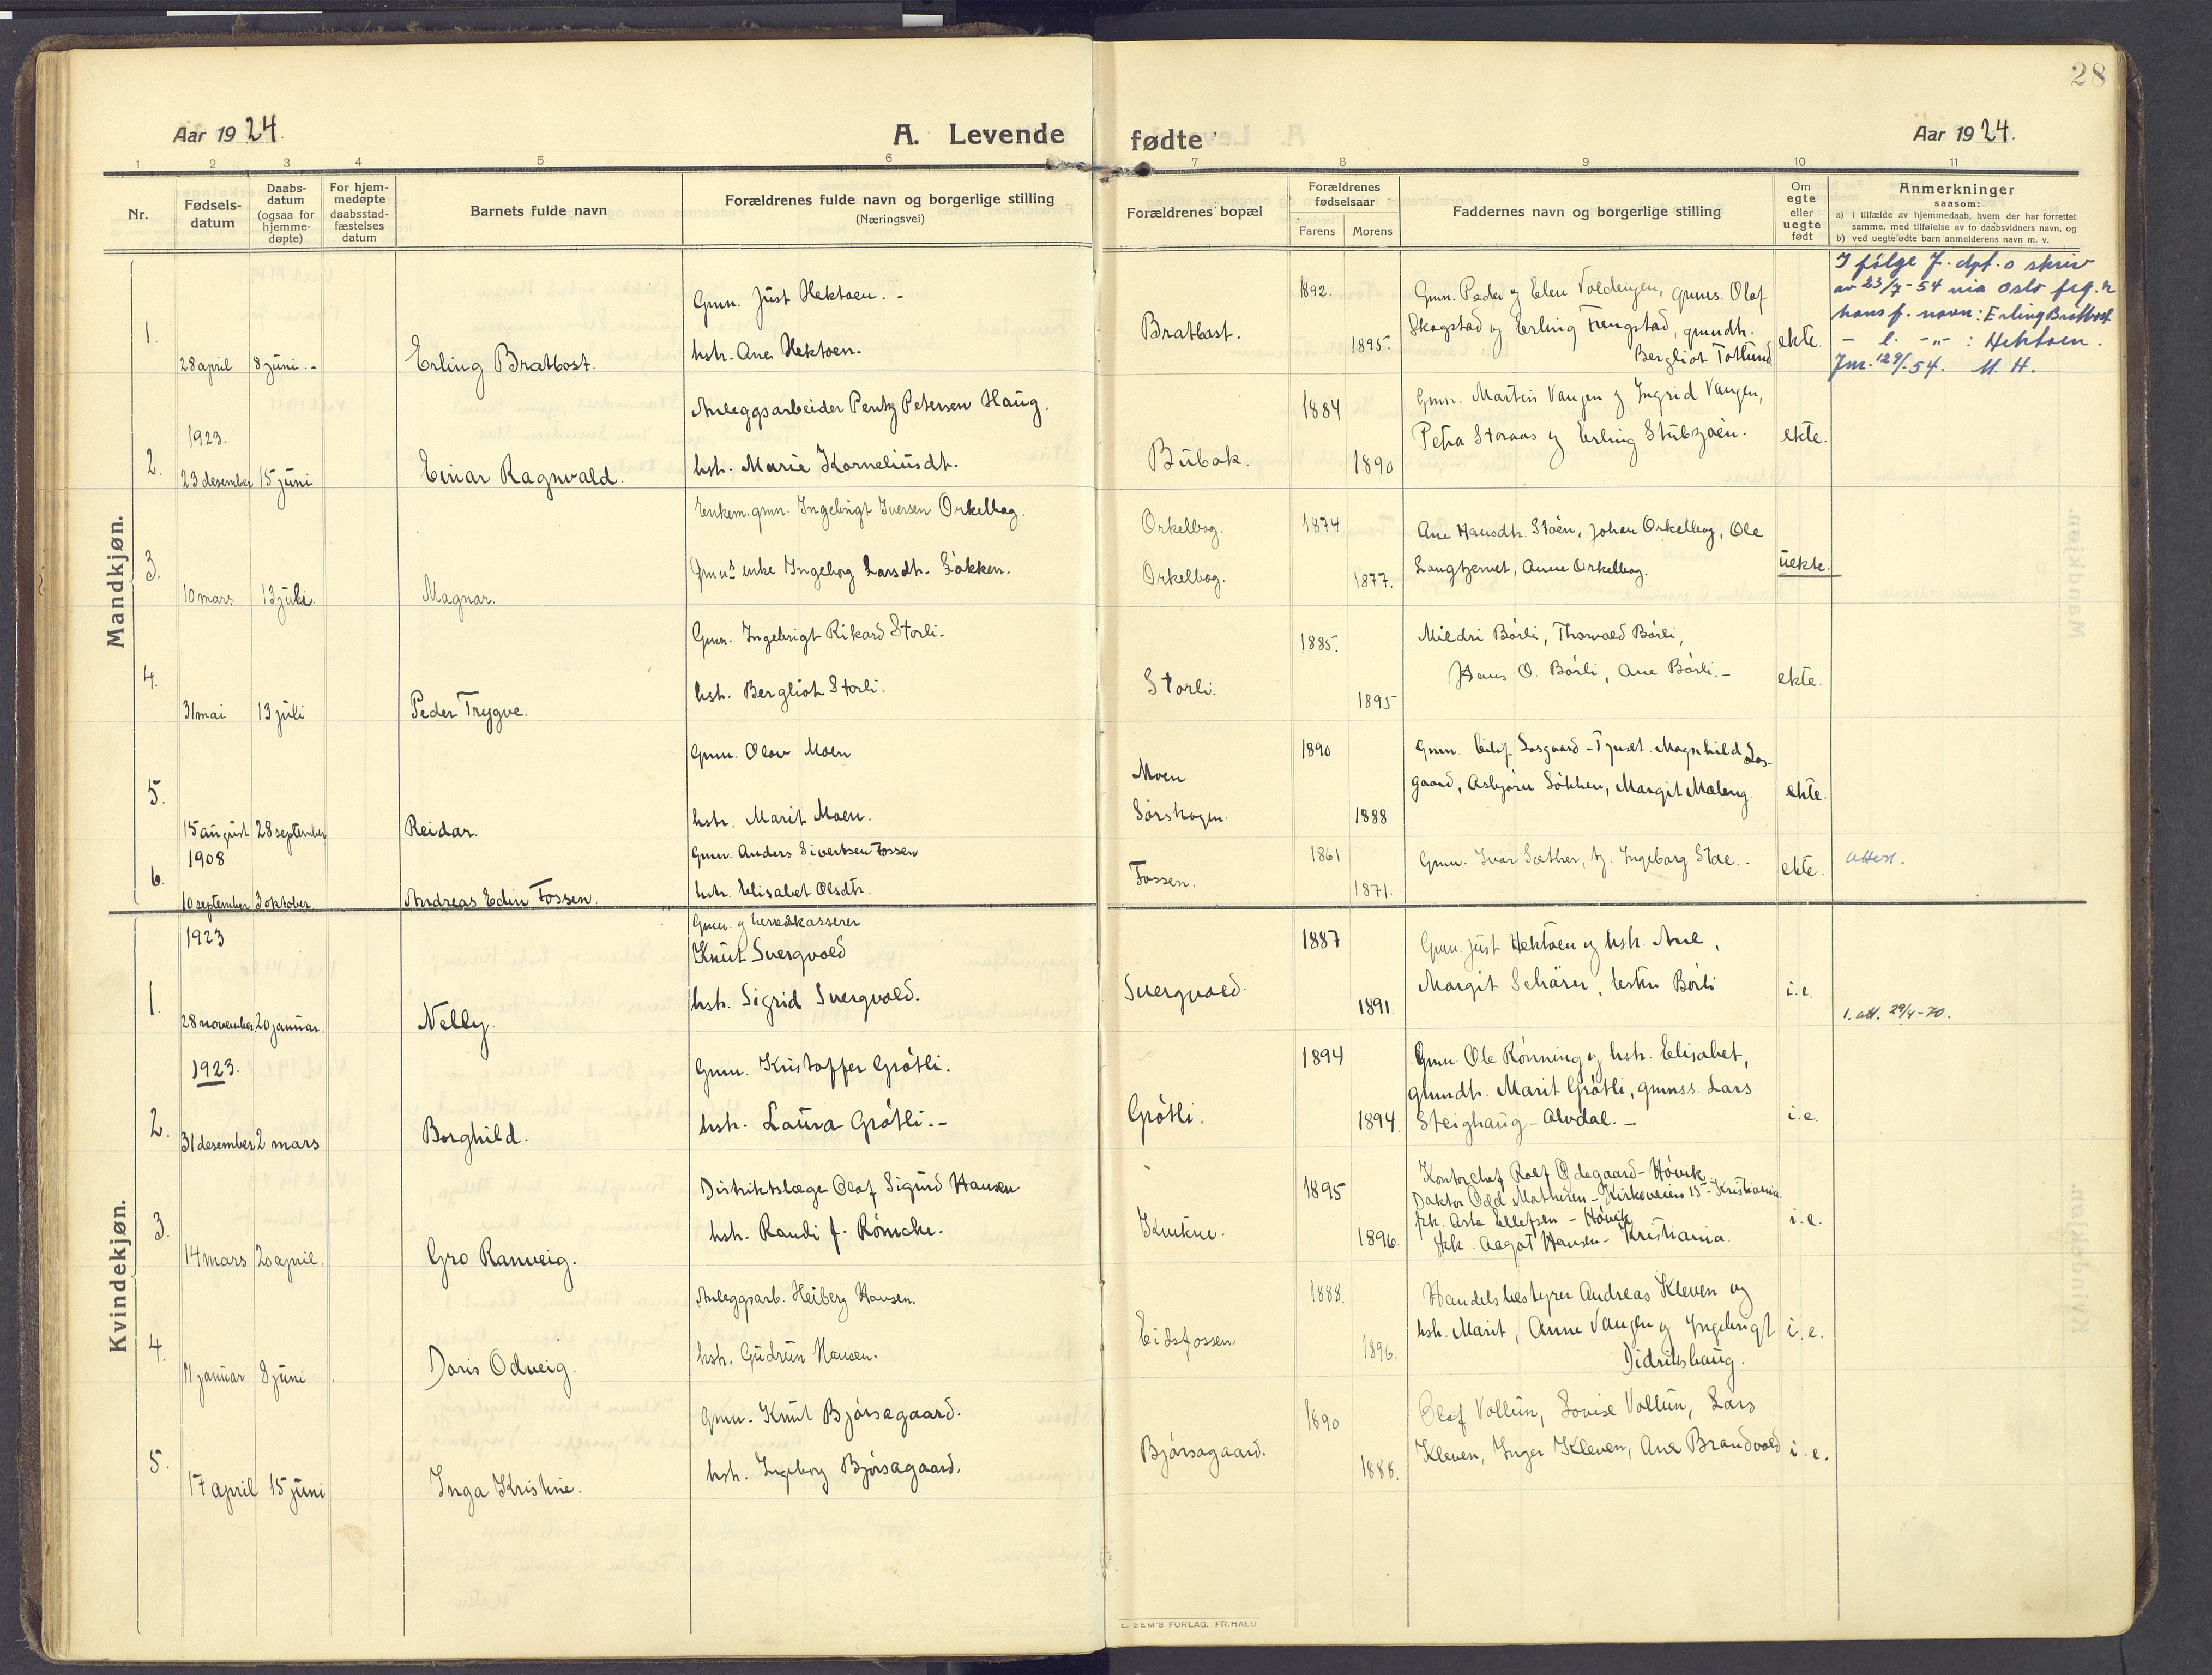 28
Aar 1924.
A. Levende fødte
Aar 1924.
1 2 3 4 5 6 7 8 9 10 11
Nr.
Fødsels-
datum
Daabs-
datum
(ogsaa for
hjemme-
døpte)
For hjem-
medøpte
daabsstad-
fæstelses
datum
Barnets fulde navn
Forældrenes fulde navn og borgerlige stilling
(Næringsvei)
Forældrenes bopæl
Forældrenes
fødselsaar
Farens Morens
Faddernes navn og borgerlige stilling
Om
egte
eller
uegte
født
Anmerkninger
saasom:
a) i tilfælde av hjemmedaab, hvem der har forrettet
samme, med tilføielse av to daabsvidners navn, og
b) ved uegte fødte barn anmelderens navn m. v.
Mandkjøn.
1.
28 april 8 juni.-
Erling Bratbost.
Gmn. Just Hektoen. -
hstr. Ane Hektoen.
Bratbost.
1892.
1895.
Gmn. Peder og Elen Voldengen, gmns. Olof
Skogstad og Erling Trengstad, gmndtr.
Bergliot Totlund
ekte.
I følge J. dpt.s skriv
av 23/7-54 via Oslo frg. er
hans f. navn: Erling Bratbost
- e. -"- : Hektoen.
Jnr. 129/-54. M. H.
2.
1923.
23 desember 15 juni
Einar Ragnvald.
Anleggsarbeider Pentz Petersen Haug.
hstr. Marie Korneliusdtr.
Bubak.
1884
1890
Gmn. Martin Vangen og Ingrid Vangen,
Petra Storaas og Erling Stubsjøen.
ekte.
3.
10 mars 13 juli.
Magnar.
Enkem. gmn. Ingebrigt Iversen Orkelbog.
Gmns enke Ingeborg Larsdtr. Løkken.
Orkelbog.
Orkelbog.
1874
1877.
Ane Hansdtr. Støen, Johan Orkelbog, Ole
Langtjernet, Anne Orkelbog.
uekte.
4.
31 mai 13 juli
Peder Trygve.
Gmn. Ingebrigt Rikard Storli.
hstr. Bergliot Storli.
Storli.
1885.
1895
Mildri Børli, Thorvald Børli,
Hans O. Børli, Ane Børli.-
ekte.
5.
15 august 28 september
Reidar.
Gmn. Olov Moen
hstr. Marit Moen.
Moen
Sørskogen.
1890
1888
Gmn. Eilif Losgaard - Tynset. Magnhild Los-
gaard, Asbjørn Løkken, Margit Maleng
ekte.
6.
1908
10 september 3 oktober
Andreas Edin Fossen.
Gmn. Anders Sivertsen Fossen
hstr. Elisabet Olsdtr.
Fossen.
1861
1871.
Gmn. Ivar Sæther, tj. Ingeborg Stae.-
ekte.
Attest.
Kvindekjøn.
1.
1923
28 november 20 januar.
Nelly.
Gmn. og herredskasserer
Knut Svergvold
hstr. Sigrid Svergvold.
Svergvold.
1887
1891.
Gmn. Just Hektoen og hstr. Ane,
Margit Schärer, Børli
i.e.
1. att. 29/4-70.
2.
1923.
31 desember 2 mars
Borghild.
Gmn. Kristoffer Grøtli.
hstr. Laura Grøtli.-
Grøtli.
1894
1894.
Gmn. Ole Rønning og hstr. Elisabet,
gmndtr. Marit Grøtli, gmnss. Lars
Steighaug - Alvdal.-
i.e.
3.
14 mars 20 april.
Gro Ranveig.
Distriktslæge Olaf Sigurd Hansen
hstr. Randi f. Rømcke.
Kvikne.
1895
1896.
Kontorchef Rolf Ødegaard - Høvik
Doktor Odd Mathisen - Kirkeveien 15 - Kristiania.
frk. Asta Ellefsen - Høvik
frk. Aagot Hansen - Kristiania.
i.e.
4.
11 januar 8 juni
Doris Odveig.
Anleggsarb. Heiberg Hansen.
hstr. Gudrun Hansen.
Eidsfossen.
1888.
1896.
Handelsbestyrer Andreas Kleven og
hstr. Marit, Anne Vangen og Ingebrigt
Didrikshaug.
i.e.
5.
17 april 15 juni
Inga Kristine.
Gmn. Knut Bjørsagaard.
hstr. Ingeborg Bjørsagaard.
Bjørsagaard.
1890
1888.
Olaf Vollun, Lovise Vollun, Lars
Kleven, Inger Kleven, Ane Brandvold
i.e.
E. SEM'S FORLAG. FR.HALD